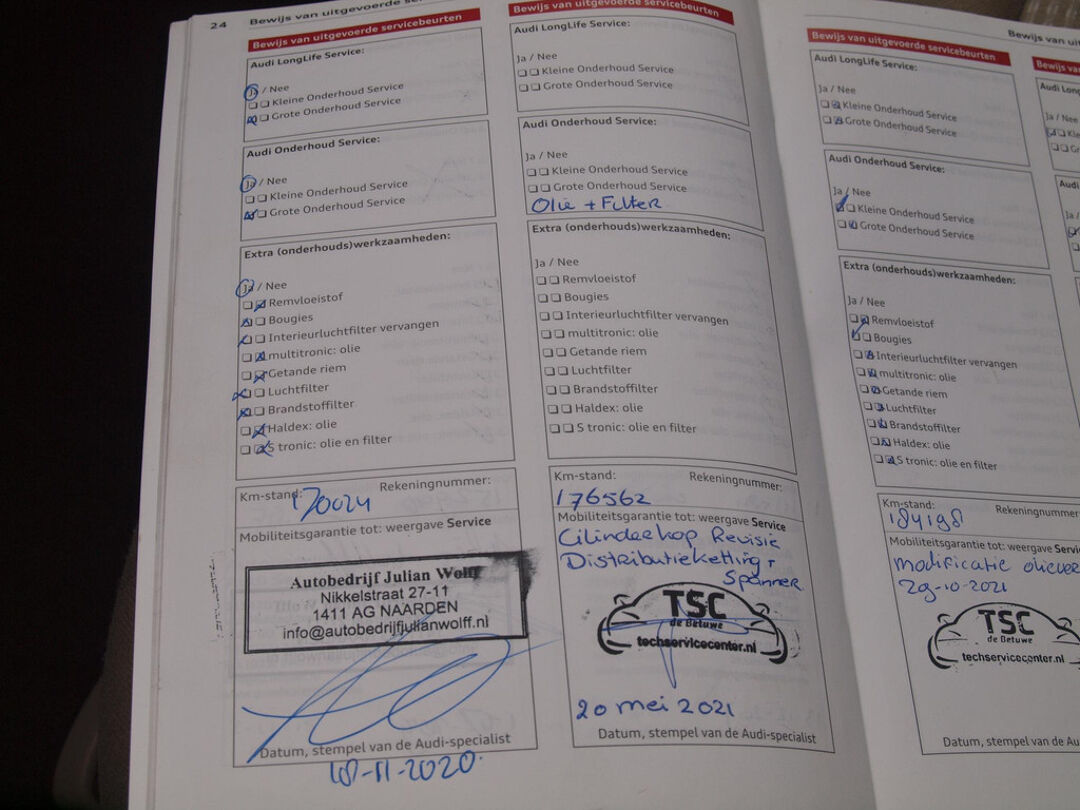 24
Bewijs van uitgevoerde
Bewijs van uitgevoerde servicebeurten
Audi LongLife Service:
Ja / Nee
Kleine Onderhoud Service
Grote Onderhoud Service
Audi Onderhoud Service:
Ja / Nee
Kleine Onderhoud Service
Grote Onderhoud Service
Extra (onderhouds)werkzaamheden:
Ja / Nee
Remvloeistof
Bougies
Interieurluchtfilter vervangen
multitronic: olie
Getande riem
Luchtfilter
Brandstoffilter
Haldex: olie
S tronic: olie en filter
Km-stand: Rekeningnummer:
170024
Mobiliteitsgarantie tot: weergave Service
Autobedrijf Julian Wolff
Nikkelstraat 27-11
1411 AG NAARDEN
info@autobedrijfjulianwolff.nl
Datum, stempel van de Audi-specialist
-11-2020
Bewijs van uitgevoerde servicebeurten
Audi LongLife Service:
Ja / Nee
Kleine Onderhoud Service
Grote Onderhoud Service
Audi Onderhoud Service:
Ja / Nee
Kleine Onderhoud Service
Grote Onderhoud Service
Olie + Filter
Extra (onderhouds)werkzaamheden:
Ja / Nee
Remvloeistof
Bougies
Interieurluchtfilter vervangen
multitronic: olie
Getande riem
Luchtfilter
Brandstoffilter
Haldex: olie
S tronic: olie en filter
Km-stand: Rekeningnummer:
176562
Mobiliteitsgarantie tot: weergave Service
Cilinderkop Revisie
Distributieketting +
Spanner
TSC
de Betuwe
techservicecenter.nl
20 mei 2021
Datum, stempel van de Audi-specialist
Bewijs van uit
Bewijs van uitgevoerde servicebeurten
Audi LongLife Service:
Ja / Nee
Kleine Onderhoud Service
Grote Onderhoud Service
Audi Onderhoud Service:
Ja / Nee
Kleine Onderhoud Service
Grote Onderhoud Service
Extra (onderhouds)werkzaamheden:
Ja / Nee
Remvloeistof
Bougies
Interieurluchtfilter vervangen
multitronic: olie
Getande riem
Luchtfilter
Brandstoffilter
Haldex: olie
S tronic: olie en filter
Km-stand: Rekeningnummer:
184198
Mobiliteitsgarantie tot: weergave Servic
modificatie
29-10-2021
TSC
de Betuwe
techservicecenter.nl
Datum, stempel van de Au
Bewijs va
Audi Lon
Ja / Nee
Kle
Gr
Audi
Ja /